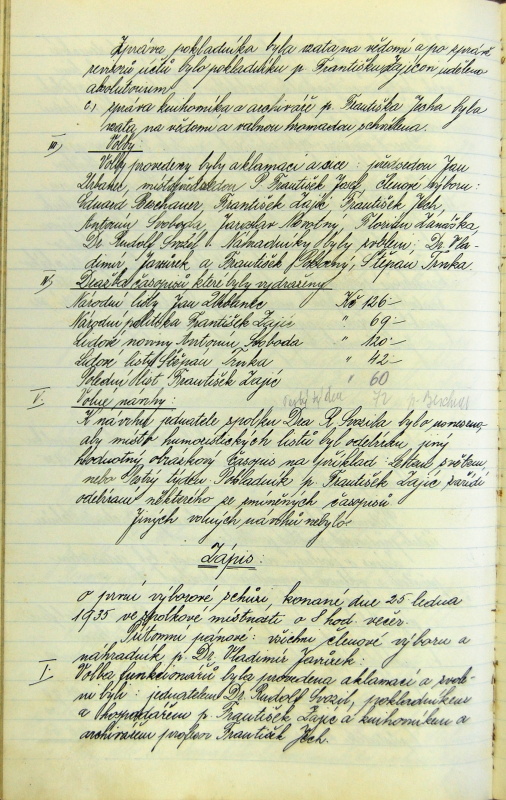 Zpráva pokladníka byla vzata na vědomí a po zprávě
revisorů účtů bylo pokladníku p. Františku Zajícovi uděleno
absolutorium.
c) zpráva knihovníka a archiváře p. Františka Jecha byla
vzata na vědomí a valnou hromadou schválena.
III) Volby:
Volby provedeny byly aklamací a sice: předsedou Jan
Urbanec, místopředsedou P. František Josef, členové výboru:
Eduard Berchauer, František Zajíc, František Jech,
Antonín Svoboda, Jaroslav Novotný, Florián Zanáška,
Dr. Rudolf Svozil. Náhradníky byli zvoleni: Dr. Vla-
dimír Javůrek a František Pokorný, Štěpán Trnka.
IV) Dražba časopisů které byly vydraženy
Národní listy Jan Kč 126.–
Národní politika František Zajíc " 69.–
Lidové noviny Antonín Svoboda " 120.–
Lidové listy Štěpán Trnka " 42.–
Polední list, František Zajíc " 60
český týden 72 p.
V. Volné návrhy:
K návrhu jednatele spolku Dra R. Svozila bylo usneseno,
aby místo humoristických listů byl odebírán jiný
hodnotný obrázkový časopis na příklad Letem světem,
nebo Pestrý týden. Pokladník p. František Zajíc zařídí
odebírání některého ze zmíněných časopisů
Jiných volných návrhů nebylo.
Zápis:
o první výborové schůzi konané dne 25 ledna
1935 ve spolkové místnosti o 8 hod. večer.
Přítomni pánové: všichni členové výboru a
náhradník p. Dr. Vladimír Javůrek:
I. Volba funkcionářů byla provedena aklamací a zvole-
ni byli: jednatelem Dr. Rudolf Svozil, pokladníkem
a hospodářem p. František Zajíc a knihovníkem a
archivářem profesor František Jech.